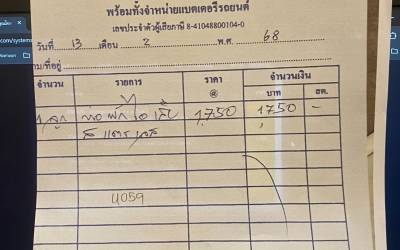 พร้อมทั้งจำหน่ายแบตเตอรี่รถยนต์
เลขประจำตัวผู้เสียภาษี 8-41048800104-0
วันที่ 13 เดือน 2 พ.ศ 68
าม/ที่อยู่
จำนวน รายการ ราคา @ จำนวนเงิน
บาท สต.
1 ลูก 1,750 1,750 -
4059